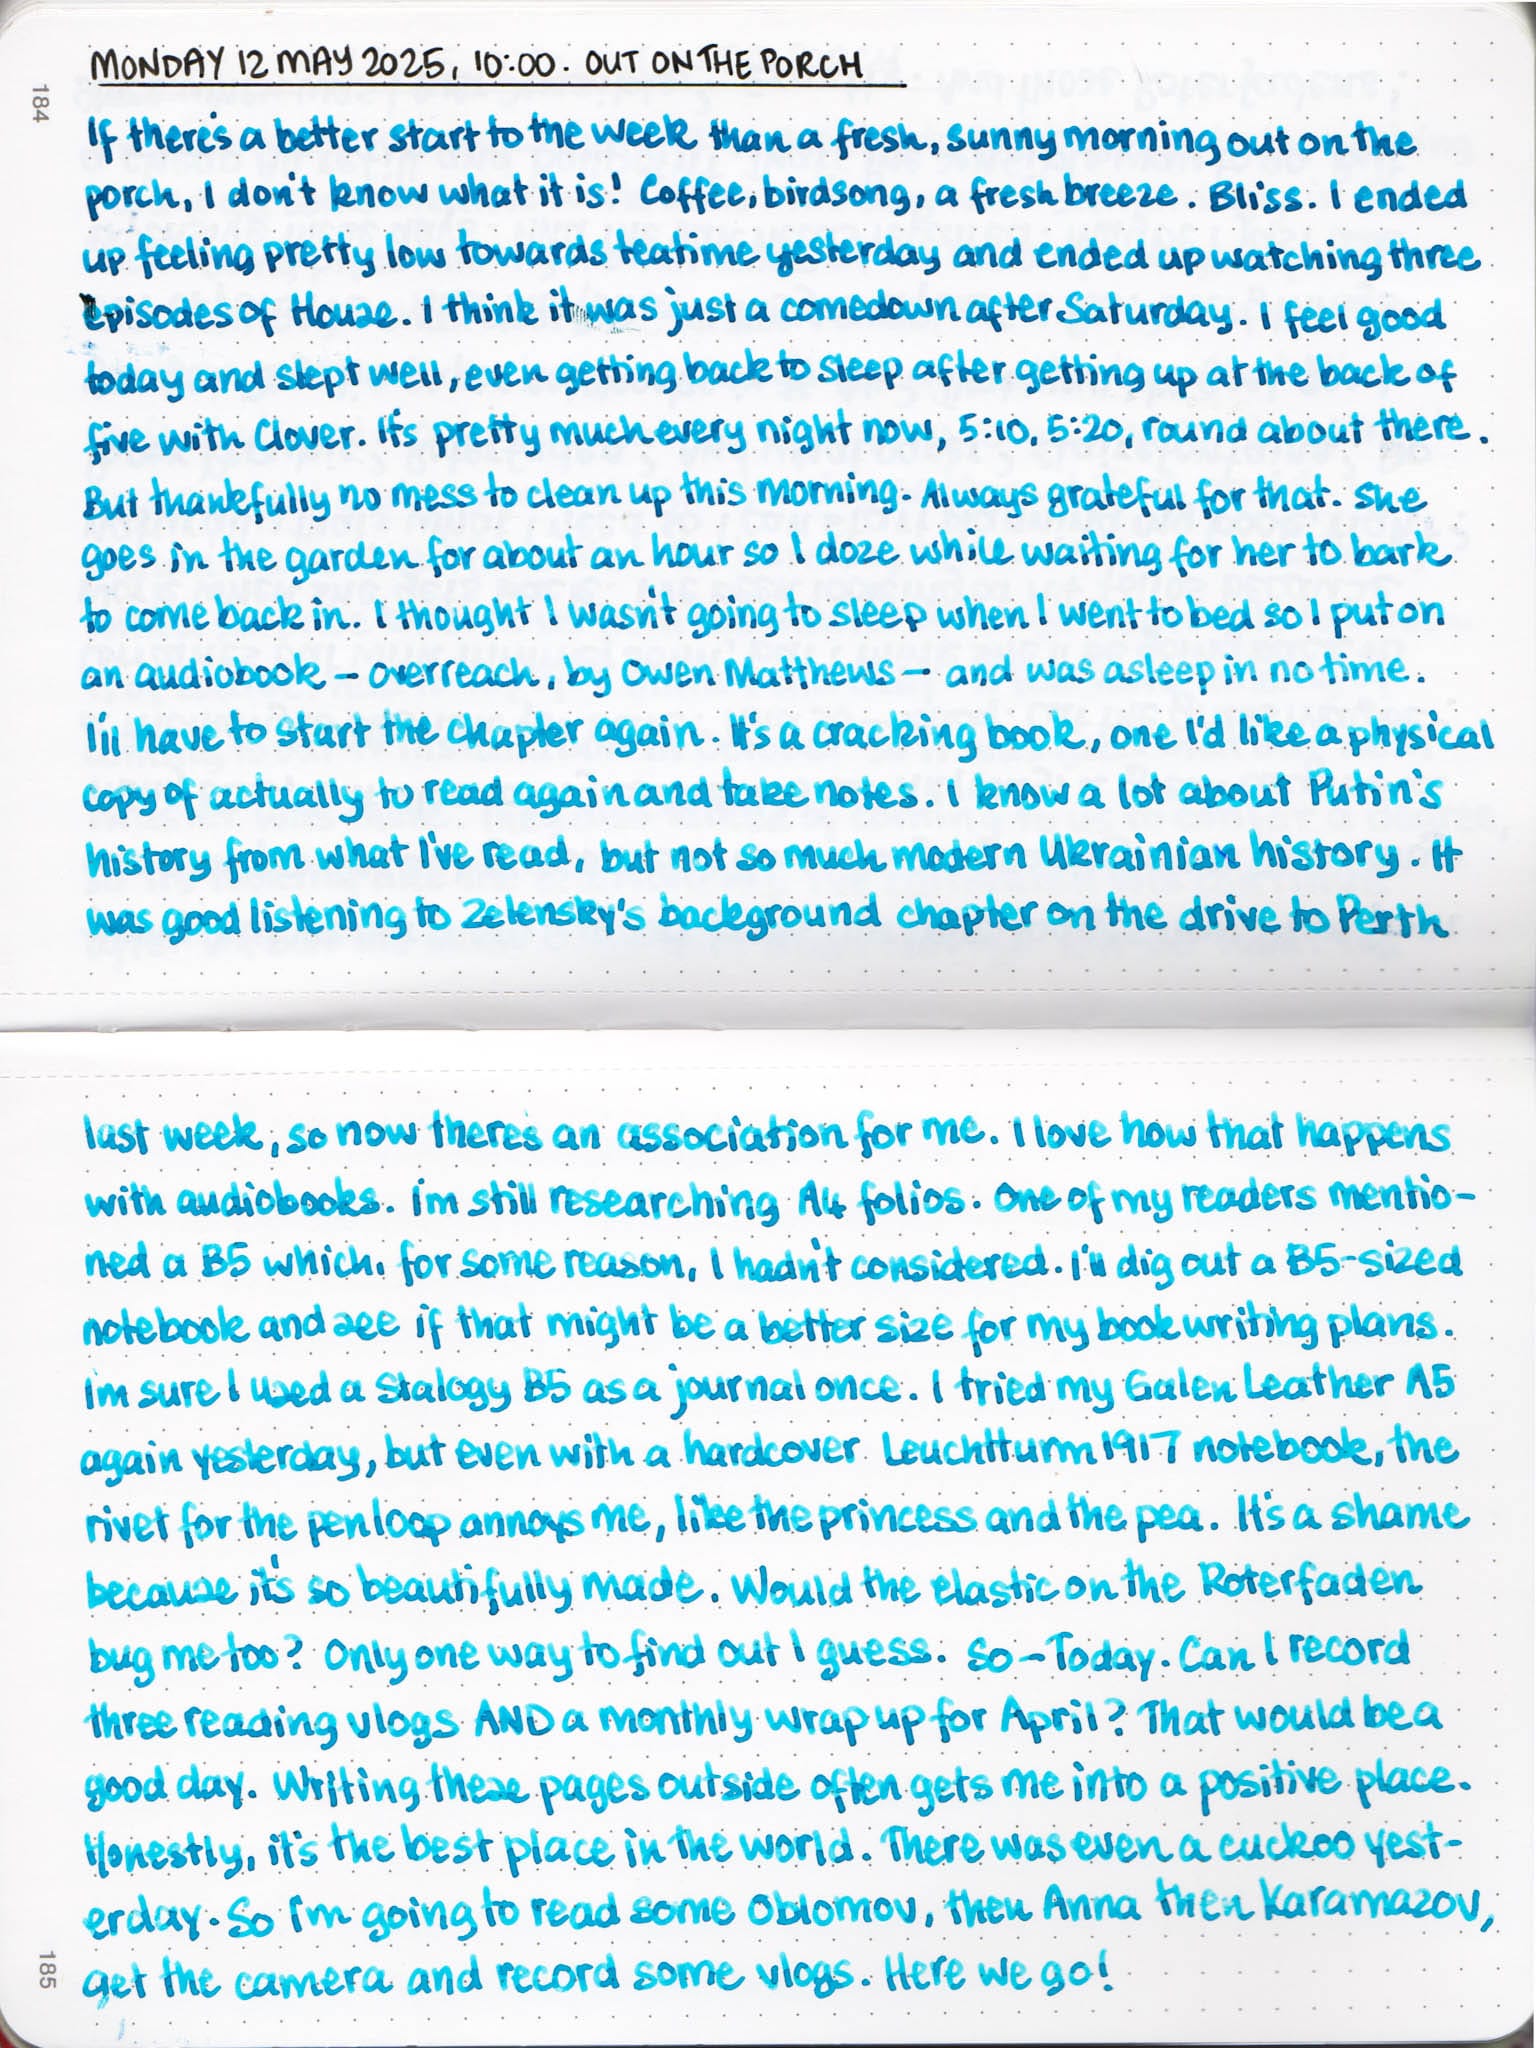 MONDAY 12 MAY 2025, 10:00. OUT ON THE PORCH
184
If there's a better start to the week than a fresh, sunny morning out on the
porch, I don't know what it is! Coffee, birdsong, a fresh breeze. Bliss. I ended
up feeling pretty low towards teatime yesterday and ended up watching three
episodes of House. I think it was just a comedown after Saturday. I feel good
today and slept well, even getting back to sleep after getting up at the back of
five with Clover. It's pretty much every night now, 5:10, 5:20, round about there.
But thankfully no mess to clean up this morning. Always grateful for that. She
goes in the garden for about an hour so I doze while waiting for her to bark
to come back in. I thought I wasn't going to sleep when I went to bed so I put on
an audiobook – overreach, by Owen Matthews – and was asleep in no time.
I'll have to start the chapter again. It's a cracking book, one I'd like a physical
copy of actually to read again and take notes. I know a lot about Putin's
history from what I've read, but not so much modern Ukrainian history. It
was good listening to Zelensky's background chapter on the drive to Perth
last week, so now there's an association for me. I love how that happens
with audiobooks. I'm still researching A4 folios. One of my readers mentio-
ned a B5 which, for some reason, I hadn't considered. I'll dig out a B5-sized
notebook and see if that might be a better size for my book writing plans.
I'm sure I used a Stalogy B5 as a journal once. I tried my Galen Leather A5
again yesterday, but even with a hardcover Leuchtturm1917 notebook, the
rivet for the pen loop annoys me, like the princess and the pea. It's a shame
because it's so beautifully made. Would the elastic on the Roterfaden
bug me too? Only one way to find out I guess. So – Today. Can I record
three reading vlogs AND a monthly wrap up for April? That would be a
good day. Writing these pages outside often gets me into a positive place.
Honestly, it's the best place in the world. There was even a cuckoo yest-
erday. So I'm going to read some Oblomov, then Anna then Karamazov,
get the camera and record some vlogs. Here we go!
185